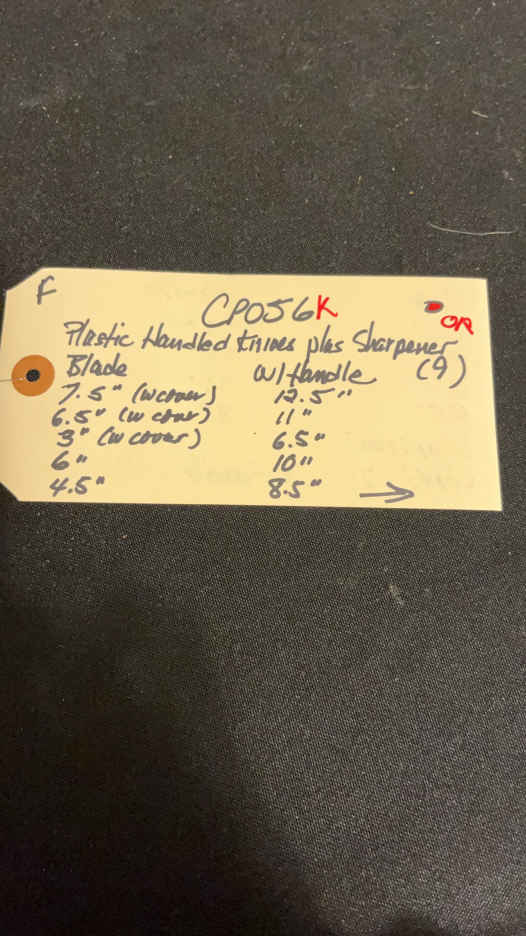 F
CP056K
OR
Plastic Handled Knives plus Sharpener
Blade w/Handle (9)
7.5" (w cover) 12.5"
6.5" (w cover) 11"
3" (w cover) 6.5"
6" 10"
4.5" 8.5" →